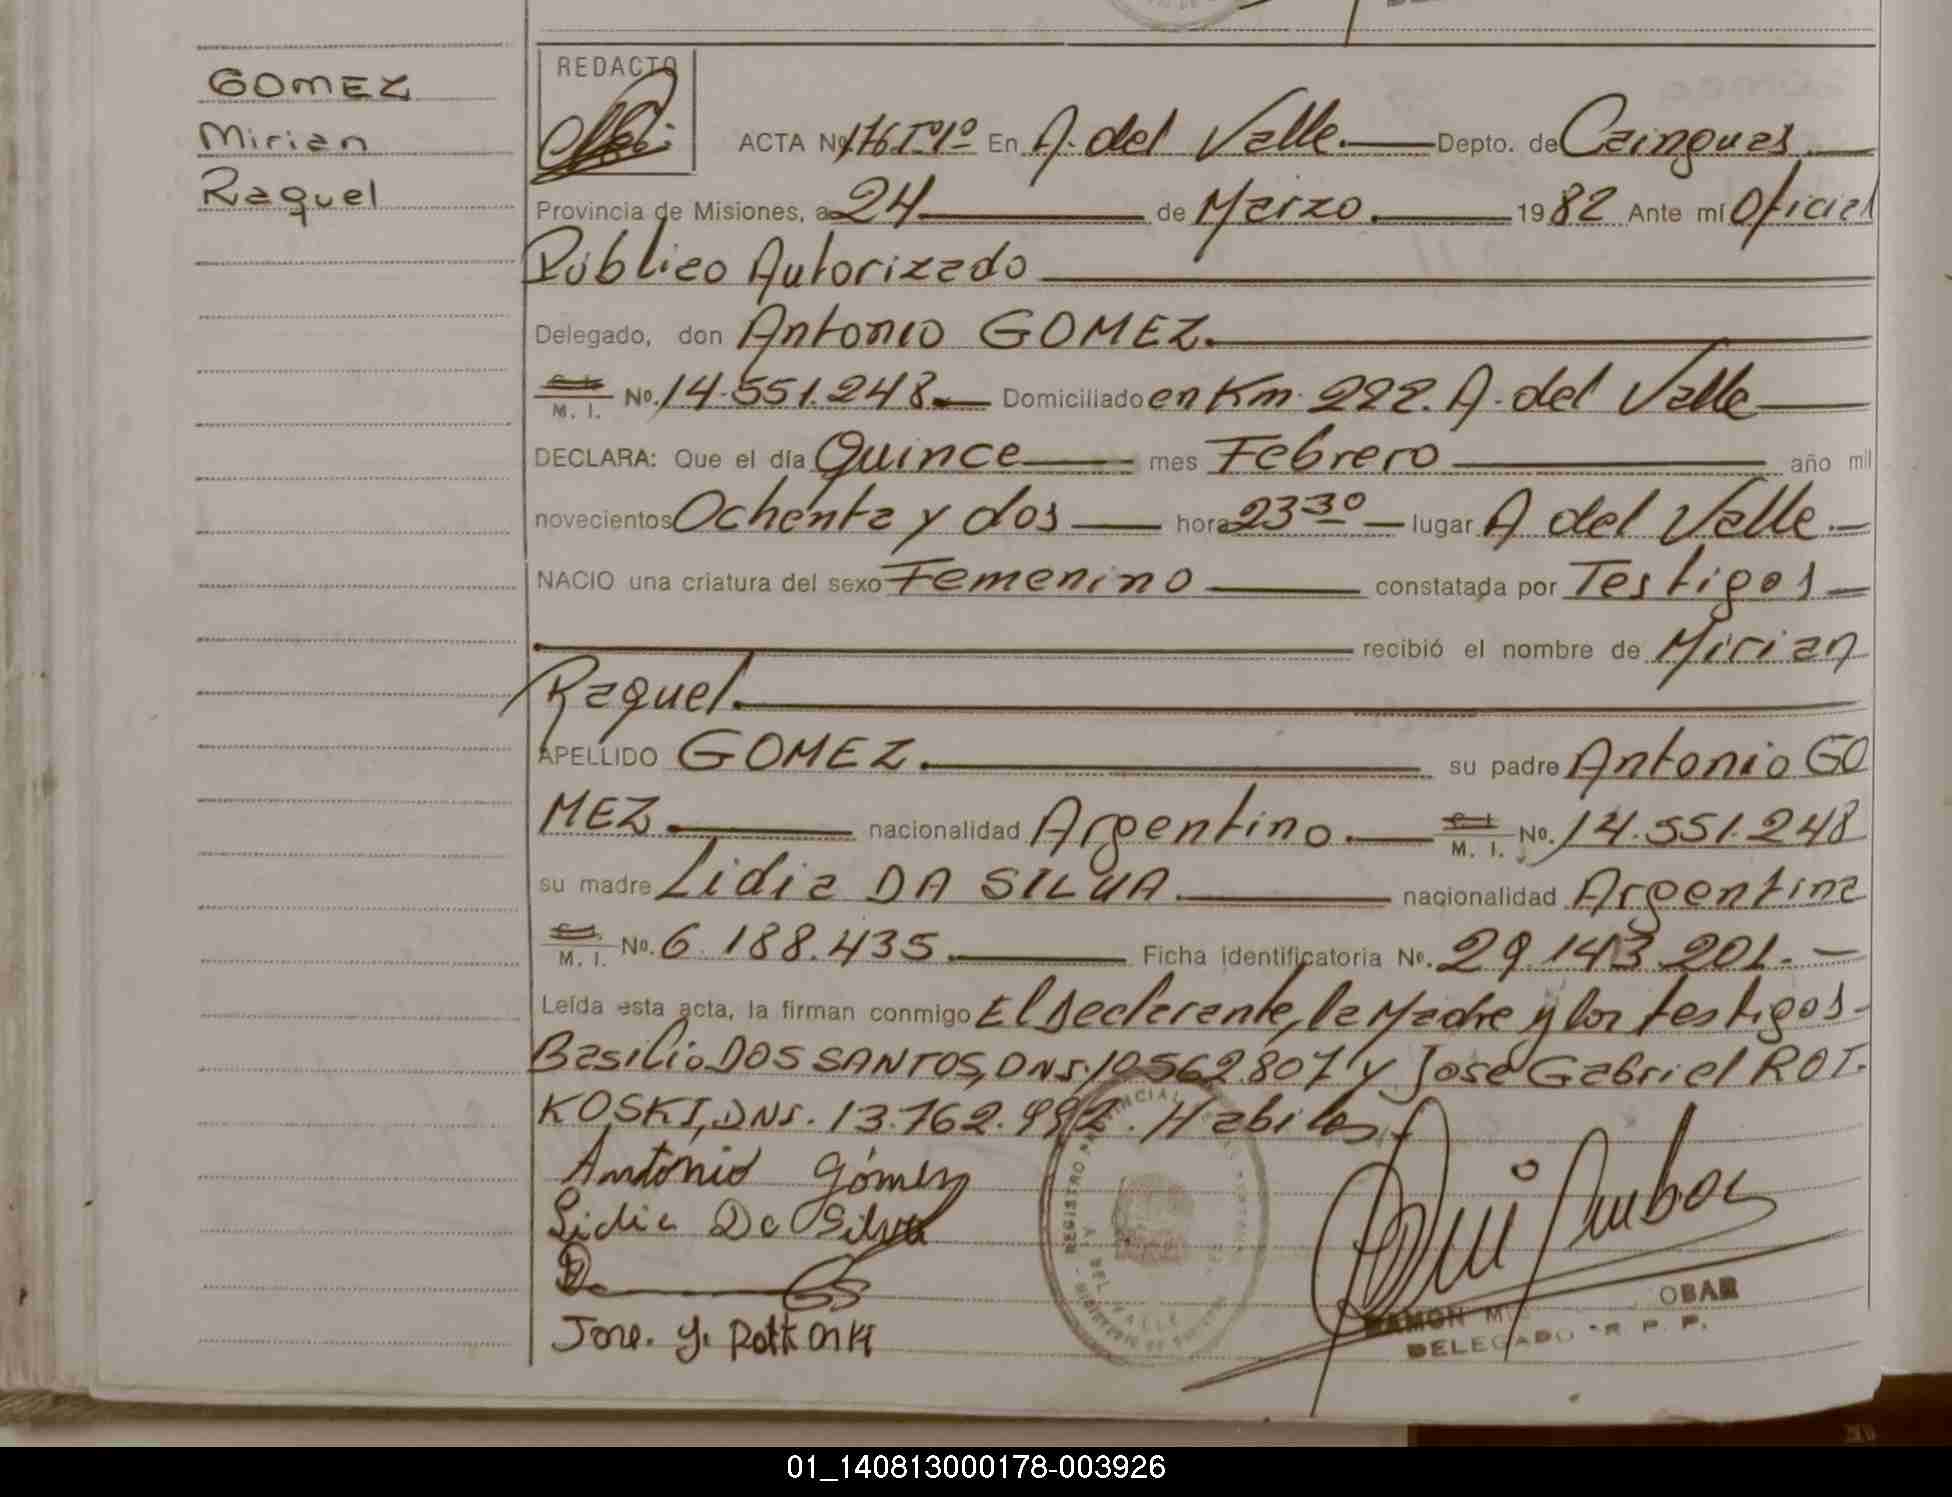 GOMEZ
Mirian
Raquel
REDACTO
ACTA Nº 176 Tº1º En A. del Valle. Depto. de Cainguas
Provincia de Misiones, a 24 de Marzo. 1982 Ante mí Oficial
Público Autorizado
Delegado, don Antonio GOMEZ.
M. I. No. 14.551.248. Domiciliado en Km. 222. A. del Valle
DECLARA: Que el día Quince mes Febrero año mil
novecientos Ochenta y dos hora 23 30 lugar A del Valle.
NACIO una criatura del sexo Femenino constatada por Testigos
recibió el nombre de Mirian
Raquel.
APELLIDO GOMEZ. su padre Antonio GO
MEZ. nacionalidad Argentino. M. I. No. 14.551.248
su madre Lidia DA SILVA. nacionalidad Argentina
M. I. No. 6.188.435. Ficha identificatoria No. 29.143.201.-
Leída esta acta, la firman conmigo El declarante, la Madre y los testigos
Basilio DOS SANTOS, DNI. 10562.807 y José Gabriel ROT-
KOSKI, DNI. 13.762.992. Habiles.
Antonio Gómez
Lidia Da Silva
José. G. Rotkoski
REGISTRO PROVINCIAL
A DEL VALLE
RAMON OBAR
DELEGADO R. P. P.
01_140813000178-003926